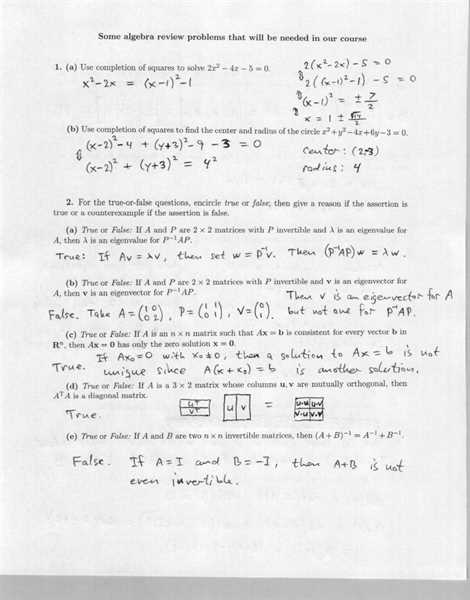 Some algebra review problems that will be needed in our course
1. (a) Use completion of squares to solve 2x² − 4x − 5 = 0.
x²-2x = (x-1)²-1
2(x²-2x)-5 = 0
⇕ 2((x-1)²-1) -5 = 0
⇕ (x-1)² = ± 7/2
⇕ x = 1 ± √14/2
(b) Use completion of squares to find the center and radius of the circle x²+y²−4x+6y−3 = 0.
(x-2)²-4 + (y+3)²-9 -3 = 0
⇕ (x-2)² + (y+3)² = 4²
center: (2,-3)
radius: 4
2. For the true-or-false questions, encircle true or false, then give a reason if the assertion is
true or a counterexample if the assertion is false.
(a) True or False: If A and P are 2 × 2 matrices with P invertible and λ is an eigenvalue for
A, then λ is an eigenvalue for P⁻¹AP.
True: If Av = λv, then set w = P⁻¹v. Then (P⁻¹AP)w = λw.
(b) True or False: If A and P are 2 × 2 matrices with P invertible and v is an eigenvector for
A, then v is eigenvector for P⁻¹AP.
Then v is an eigenvector for A
False. Take A = (1 0 0 2), P = (1 1 0 1), v = (0 1) but not one for P⁻¹AP.
(c) True or False: If A is an n × n matrix such that Ax = b is consistent for every vector b in
Rⁿ, then Ax = 0 has only the zero solution x = 0.
If Ax₀=0 with x₀≠0, then a solution to Ax = b is not
True. unique since A(x+x₀) = b is another solution.
(d) True or False: If A is a 3 × 2 matrix whose columns u, v are mutually orthogonal, then
AᵀA is a diagonal matrix.
True. uᵀ vᵀ u v = u·u u·v v·u v·v
(e) True or False: If A and B are two n × n invertible matrices, then (A+B)⁻¹ = A⁻¹ + B⁻¹.
False. If A=I and B=-I, then A+B is not
even invertible.